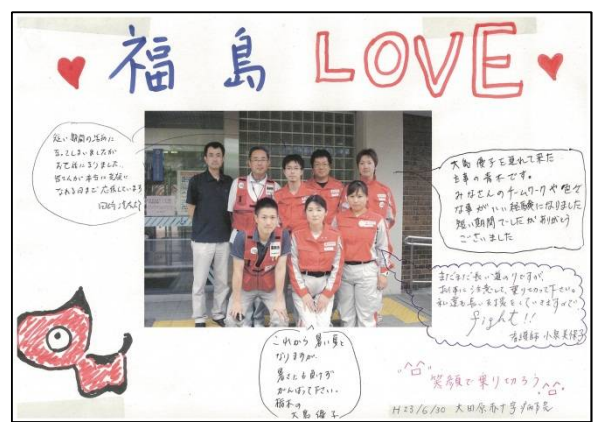 福島 LOVE
短い期間の活動に
なってしまいましたが
お世話になりました。
皆さんが本当に笑顔に
なれる日まで応援しています
大島優子を見れて来た
主事の青木です。
みなさんのチームワークや色々
な事がいい経験になりました
短い期間でしたがありがとう
ございました
まだまだ長い道のりですが、
お体に注意して、乗りきって下さい。
私達も長い支援をしていきますので
fight!!
看護師 小泉美保子
これから暑い夏と
なりますが
暑さにも負けず
がんばって下さい。
栃木の
大島優子
笑顔で乗り切ろう
H23/6/30 大田原赤十字病院